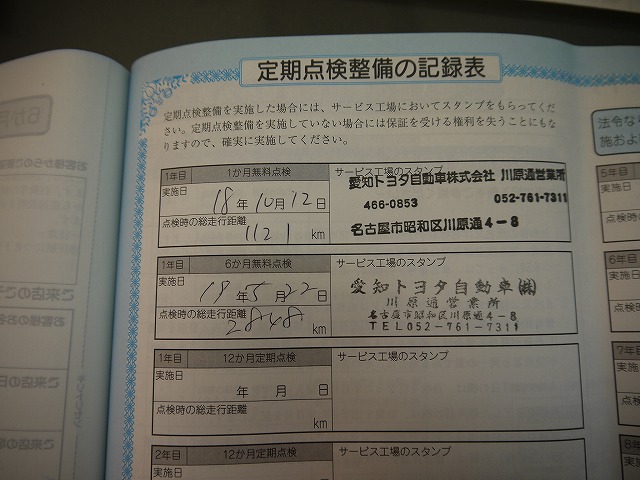 定期点検整備の記録表
定期点検整備を実施した場合には、サービス工場においてスタンプをもらってくだ
さい。定期点検整備を実施していない場合には保証を受ける権利を失うことにもな
りますので、確実に実施してください。
1年目 1か月無料点検 サービス工場のスタンプ
実施日 18年10月12日
点検時の総走行距離
1121 km
愛知トヨタ自動車株式会社 川原通営業所
466-0853 052-761-7311
名古屋市昭和区川原通4-8
1年目 6か月無料点検 サービス工場のスタンプ
実施日 19年5月22日
点検時の総走行距離
2848 km
愛知トヨタ自動車㈱
川原通営業所
名古屋市昭和区川原通4-8
TEL052-761-7311
1年目 12か月定期点検 サービス工場のスタンプ
実施日
年 月 日
点検時の総走行距離
km
2年目 12か月定期点検 サービス工場のスタンプ
実施日
法令な
施およ
5年目
実施
点検
6年目
実施
点検
7年
実施
点検
8年
6か月